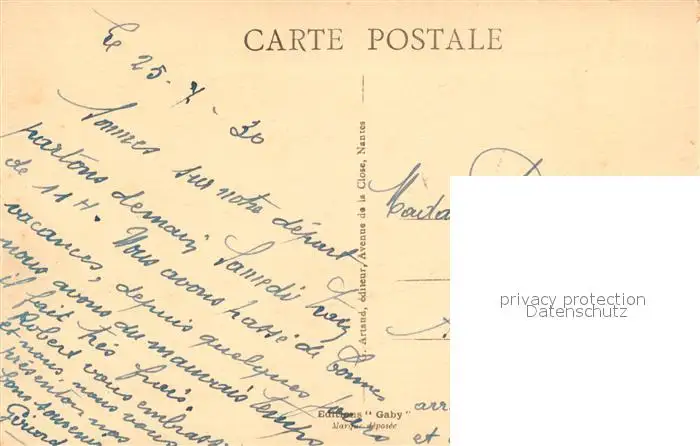 CARTE POSTALE
Le 25-7-30
Sommes sur notre départ
partons demain Samedi
de 11H. Nous avons passé de bonnes
vacances, depuis quelques jours
nous avons du mauvais temps
il fait très frais
Robert vous embrasse
et nous, nous vous
présentons nos
bons souvenirs
J. Artaud, éditeur, Avenue de la Close, Nantes
Editions "Gaby"
Marque déposée
privacy protection
Datenschutz
arr
et